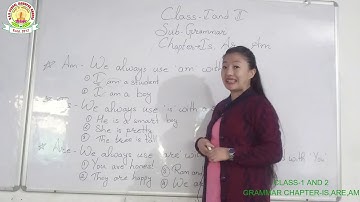 Class-I and II
Sub-Grammar
Chapter-Is, Are, Am
Am- We always use 'am' with
① I am a student
② I am a boy
- We always use 'is' with
① He is a smart boy
② She is pretty
③ The tree is
Are- We always use are with with 'You'
① You are honest
② They are happy
③ Ram
④ We a
CLASS-1 AND 2
GRAMMAR CHAPTER-IS,ARE,AM